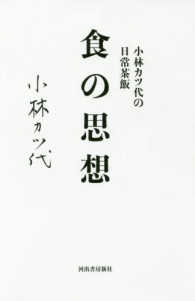 小林カツ代の
日常茶飯
食の思想
小林カツ代
河出書房新社